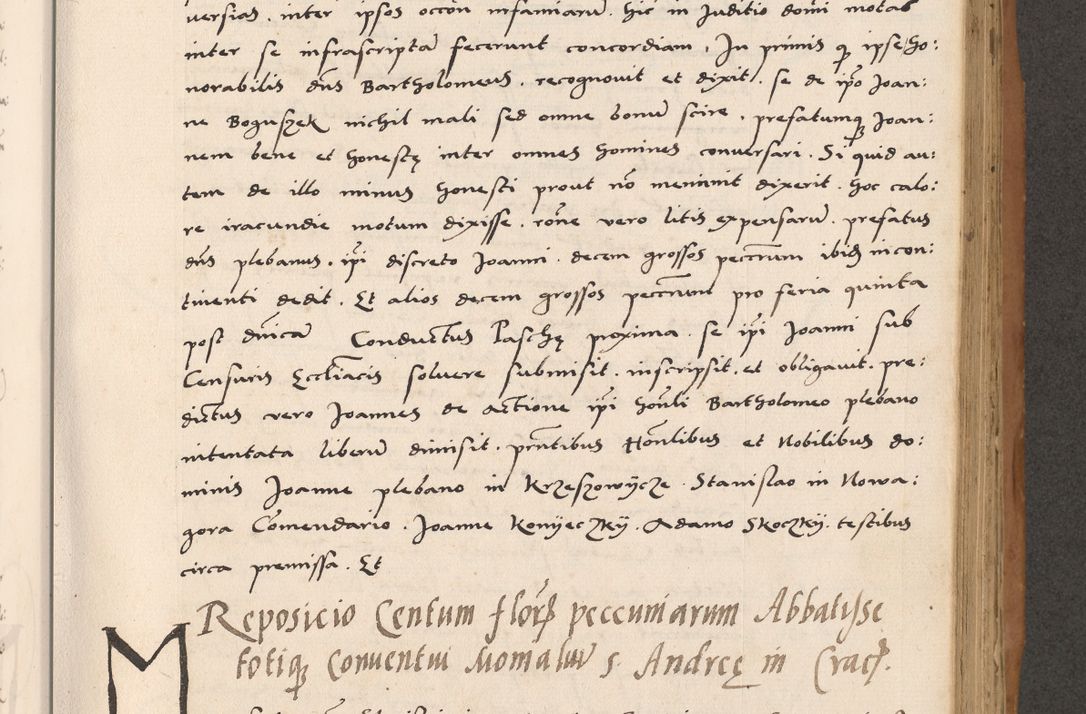 versias . inter ipsos occõn infamiarũ . hic in Juditio domi motas
inter se infrascriptã fecerunt concordiam . In primis q ipse ho:
norabilis dñs Bartholomeus . recognovit et dixit . se de ipo Joan:
ne Boguszek nichil mali sed omne bonũ scire . prefatumq Joan:
nem bene et honestę inter omnes homines conversari . Si quid au:
tem de illo minus honesti prout nõ meminit dixerit . hoc calo:
re iracundie motum dixisse . rõne vero litis expensarũ . prefatus
dñs plebanus . ipi discreto Joanni . decem grossos peccrum ibid incon:
tinenti dedit . Et alios decem grossos peccrum pro feria quinta
post dnicã Conductus Paschę proxima . se ipi Joanni sub
Censuris Eccliacis solvere submisit . inscripsit . et obligavit . pre:
dictus vero Joannes de actione ipi honli Bartholomeo plebano
intentata liberũ dimisit . pñtibus Honlibus et Nobilibus do:
minis Joanne plebano in Krzeszowijcze . Stanislao in Nowa:
gora Comendario . Joanne Konijeczkij . Adamo Skoczkij . testibus
circa premissa . Et
Reposicio Centum florz pecuniarum Abbatisse
totiq Conventui Monialiũ s. Andreę in Crac.
M